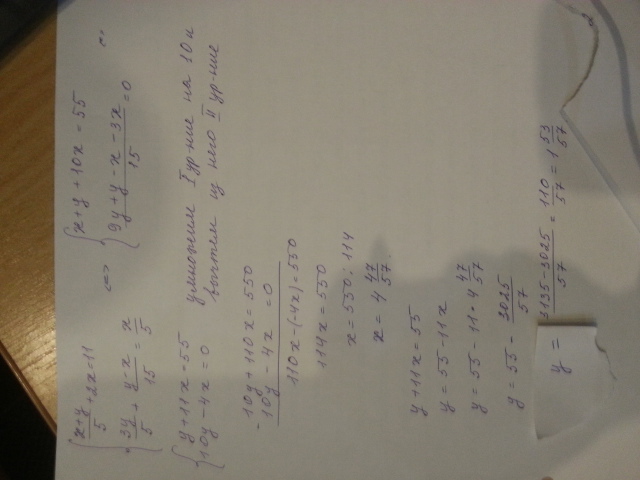 { x+y/5 + 2x = 11 <=> { x+y+10x = 55 <=>
{ 3y/5 + y-x/15 = x/5 { 9y+y-x-3x/15 = 0
{ y+11x = 55 умножим I ур-ние на 10 и
{ 10y-4x = 0 вычтем из него II ур-ние
10y+110x = 550
- 10y-4x = 0
110x-(-4x) = 550
114x = 550
x = 550 : 114
x = 4 47/57.
y+11x = 55
y = 55-11x
y = 55-11·4 47/57
y = 55 - 3025/57
y = 3135-3025/57 = 110/57 = 1 53/57